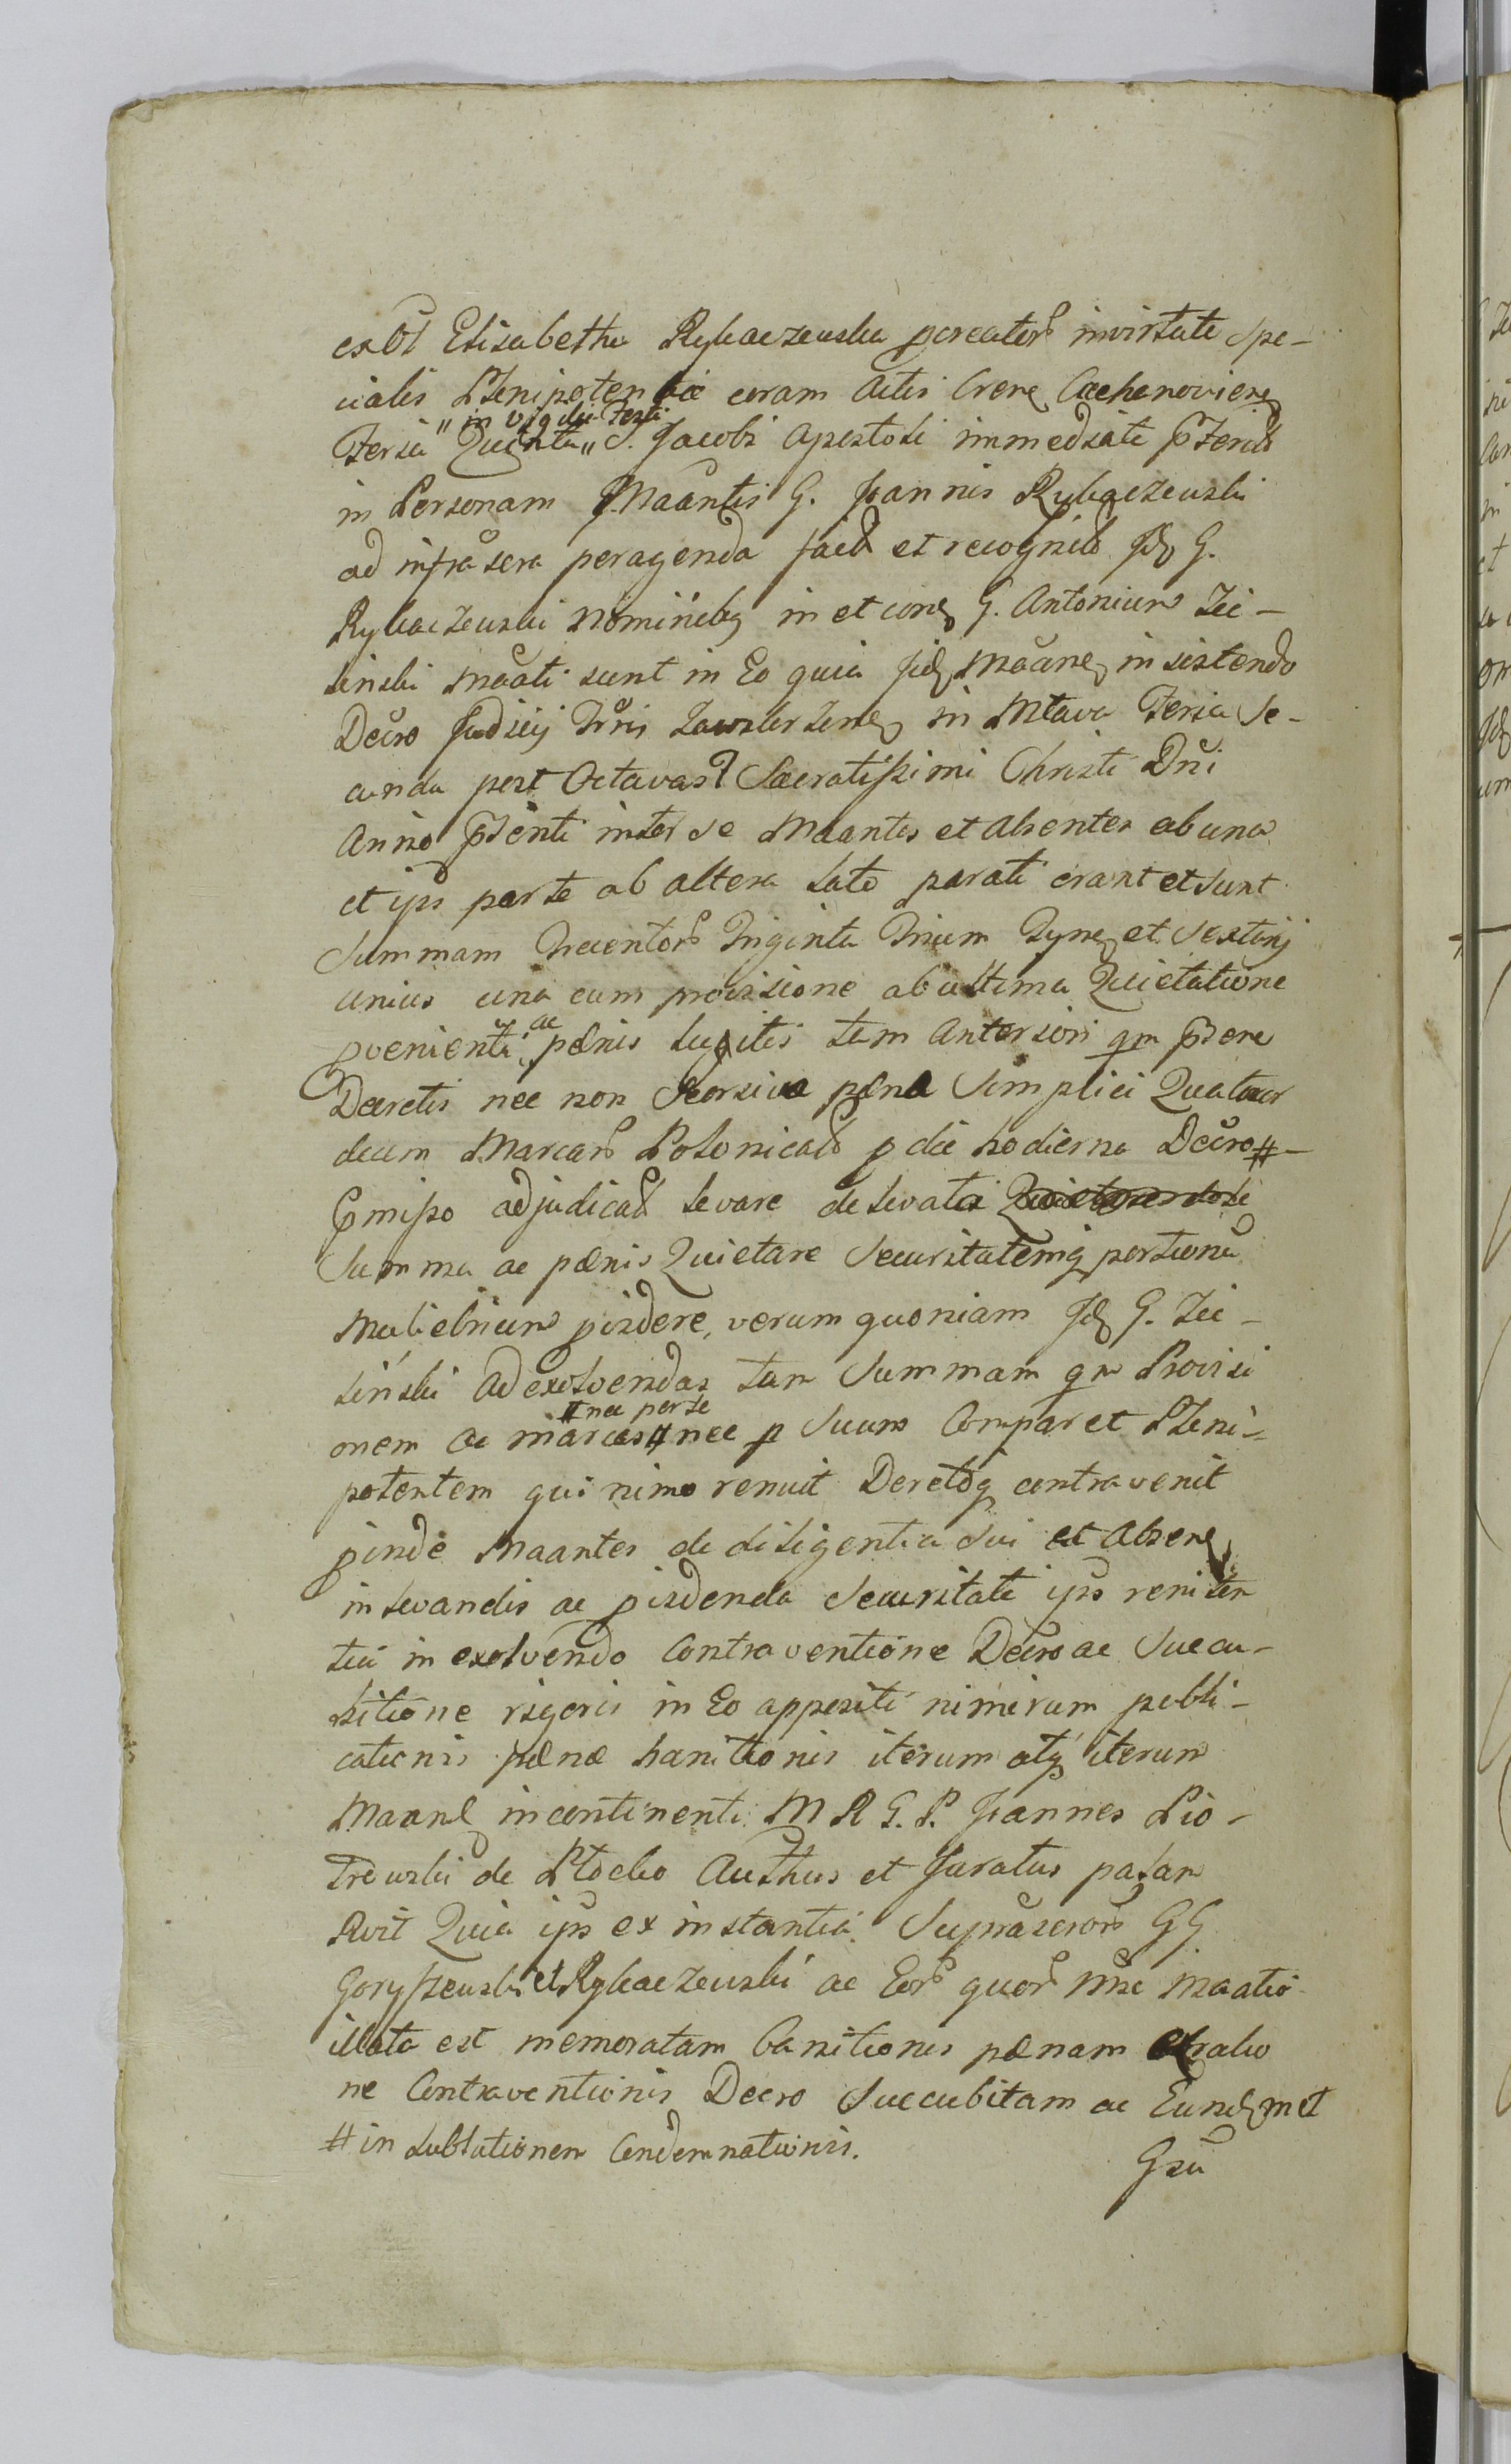 Elisabetha Rykaczewska procreator̃ invirtute Spe-
cialis Plenipotentiae coram Actis Crene Ciechanoviene
" in Vigilia Festi
Feria Quinta " S. Jacobi Apostoli immediate pterit
in Personam Maantis G. Joannis Rykaczewski
ad infra sera peragenda fact et recognit Jd G.
Rykaczewski nominibq in et cone G. Antonium Zie-
linski maati sunt in Eo quia Jid Maane insistendo
Decro Judicij Tris Zawskrzene in Mlava Feria Se-
cunda post Octavas Sacratissimi Christi Dni
Anno pnti inter se Maantes et Absentes ab una
et ips parte ab altera lato parati erant et sunt
Summam Trecentor Triginta Trium Tyne et Sextarij
unius una cum provisione ab ultima Quietatione
ac
pvenienti, pænis luitis tam Anteriori qm psene
Decretis nec non Seorsiva pæna Simplici Quatuor
decim Marcar Polonical p die hodierna Decro #-
pmisso adjudicat levare de levatis
Summa ac pænis Quietare Securitatemq portioni
Maliebrium pindere, verum quoniam Jd G. Zie-
liński ad exolvendas tam Summam qm Provisi
# nec per se
onem ac marcas # nec p Suum Comparet Pleni-
potentem qui nimo renuit Deretoq contravenit
pinde Maantes de diligentia sui et Absene
in levandis ac pindenda Securitate ips reniten
tia in exolvendo Contraventione Decro ac Succu-
bitione rigoris in Eo appositi nimirum publi-
cationis pænæ banitionis iterum atq iterum
Maane incontinenti M R G. P. Joannes Pio-
trowski de Plocko Authus et Juratus palam
Rvit Quia ips ex instantia Suprascror GG
Goryszewski et Rykaczewski ac Eor quor nne maatio
illata est memoratam banitionis pænam ratio
ne Contraventionis Decro Succubitam ac Eundmet
# in sublationem Condemnationis.
Gsu